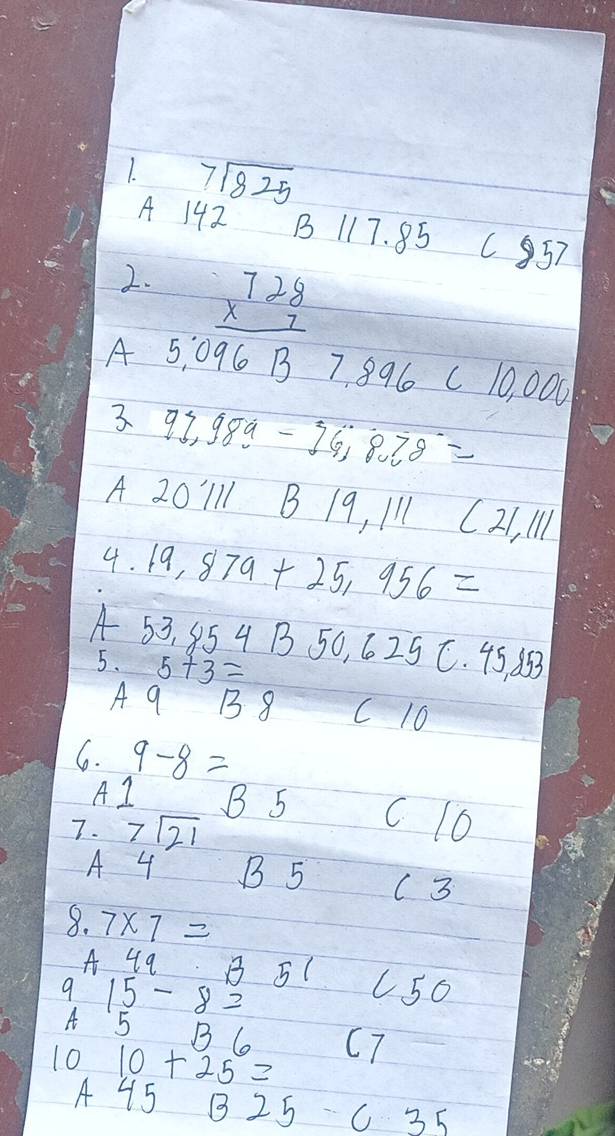 1. 7⟌825
A 142 B 117.85 C 857
2. 728
x 7
A 5,096 B 7,896 C 10,000
3 97,989 - 76,878 =
A 20'111 B 19,111 C 21,111
4. 19,879 + 25,956 =
A 53,854 B 50,625 C. 45,853
5. 5+3=
A 9 B 8 C 10
6. 9-8=
A 1 B 5 C 10
7. 7⟌21
A 4 B 5 C 3
8. 7x7 =
A 49 B 51 C 50
9 15 - 8=
A 5 B 6 C 7
10 10 + 25 =
A 45 B 25 C 35